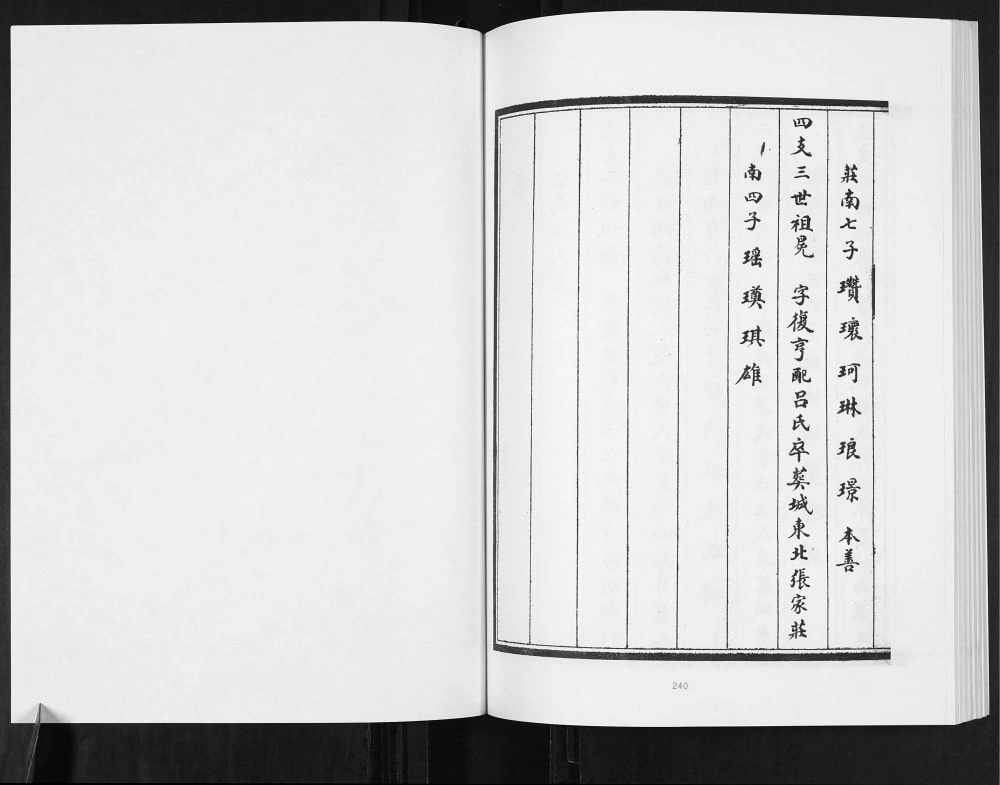 莊南七子瓚瓌珂琳琅璟本善
四支三世祖冕 字復亨配呂氏卒葬城東北張家莊
南四子瑶瑛琪雄
240